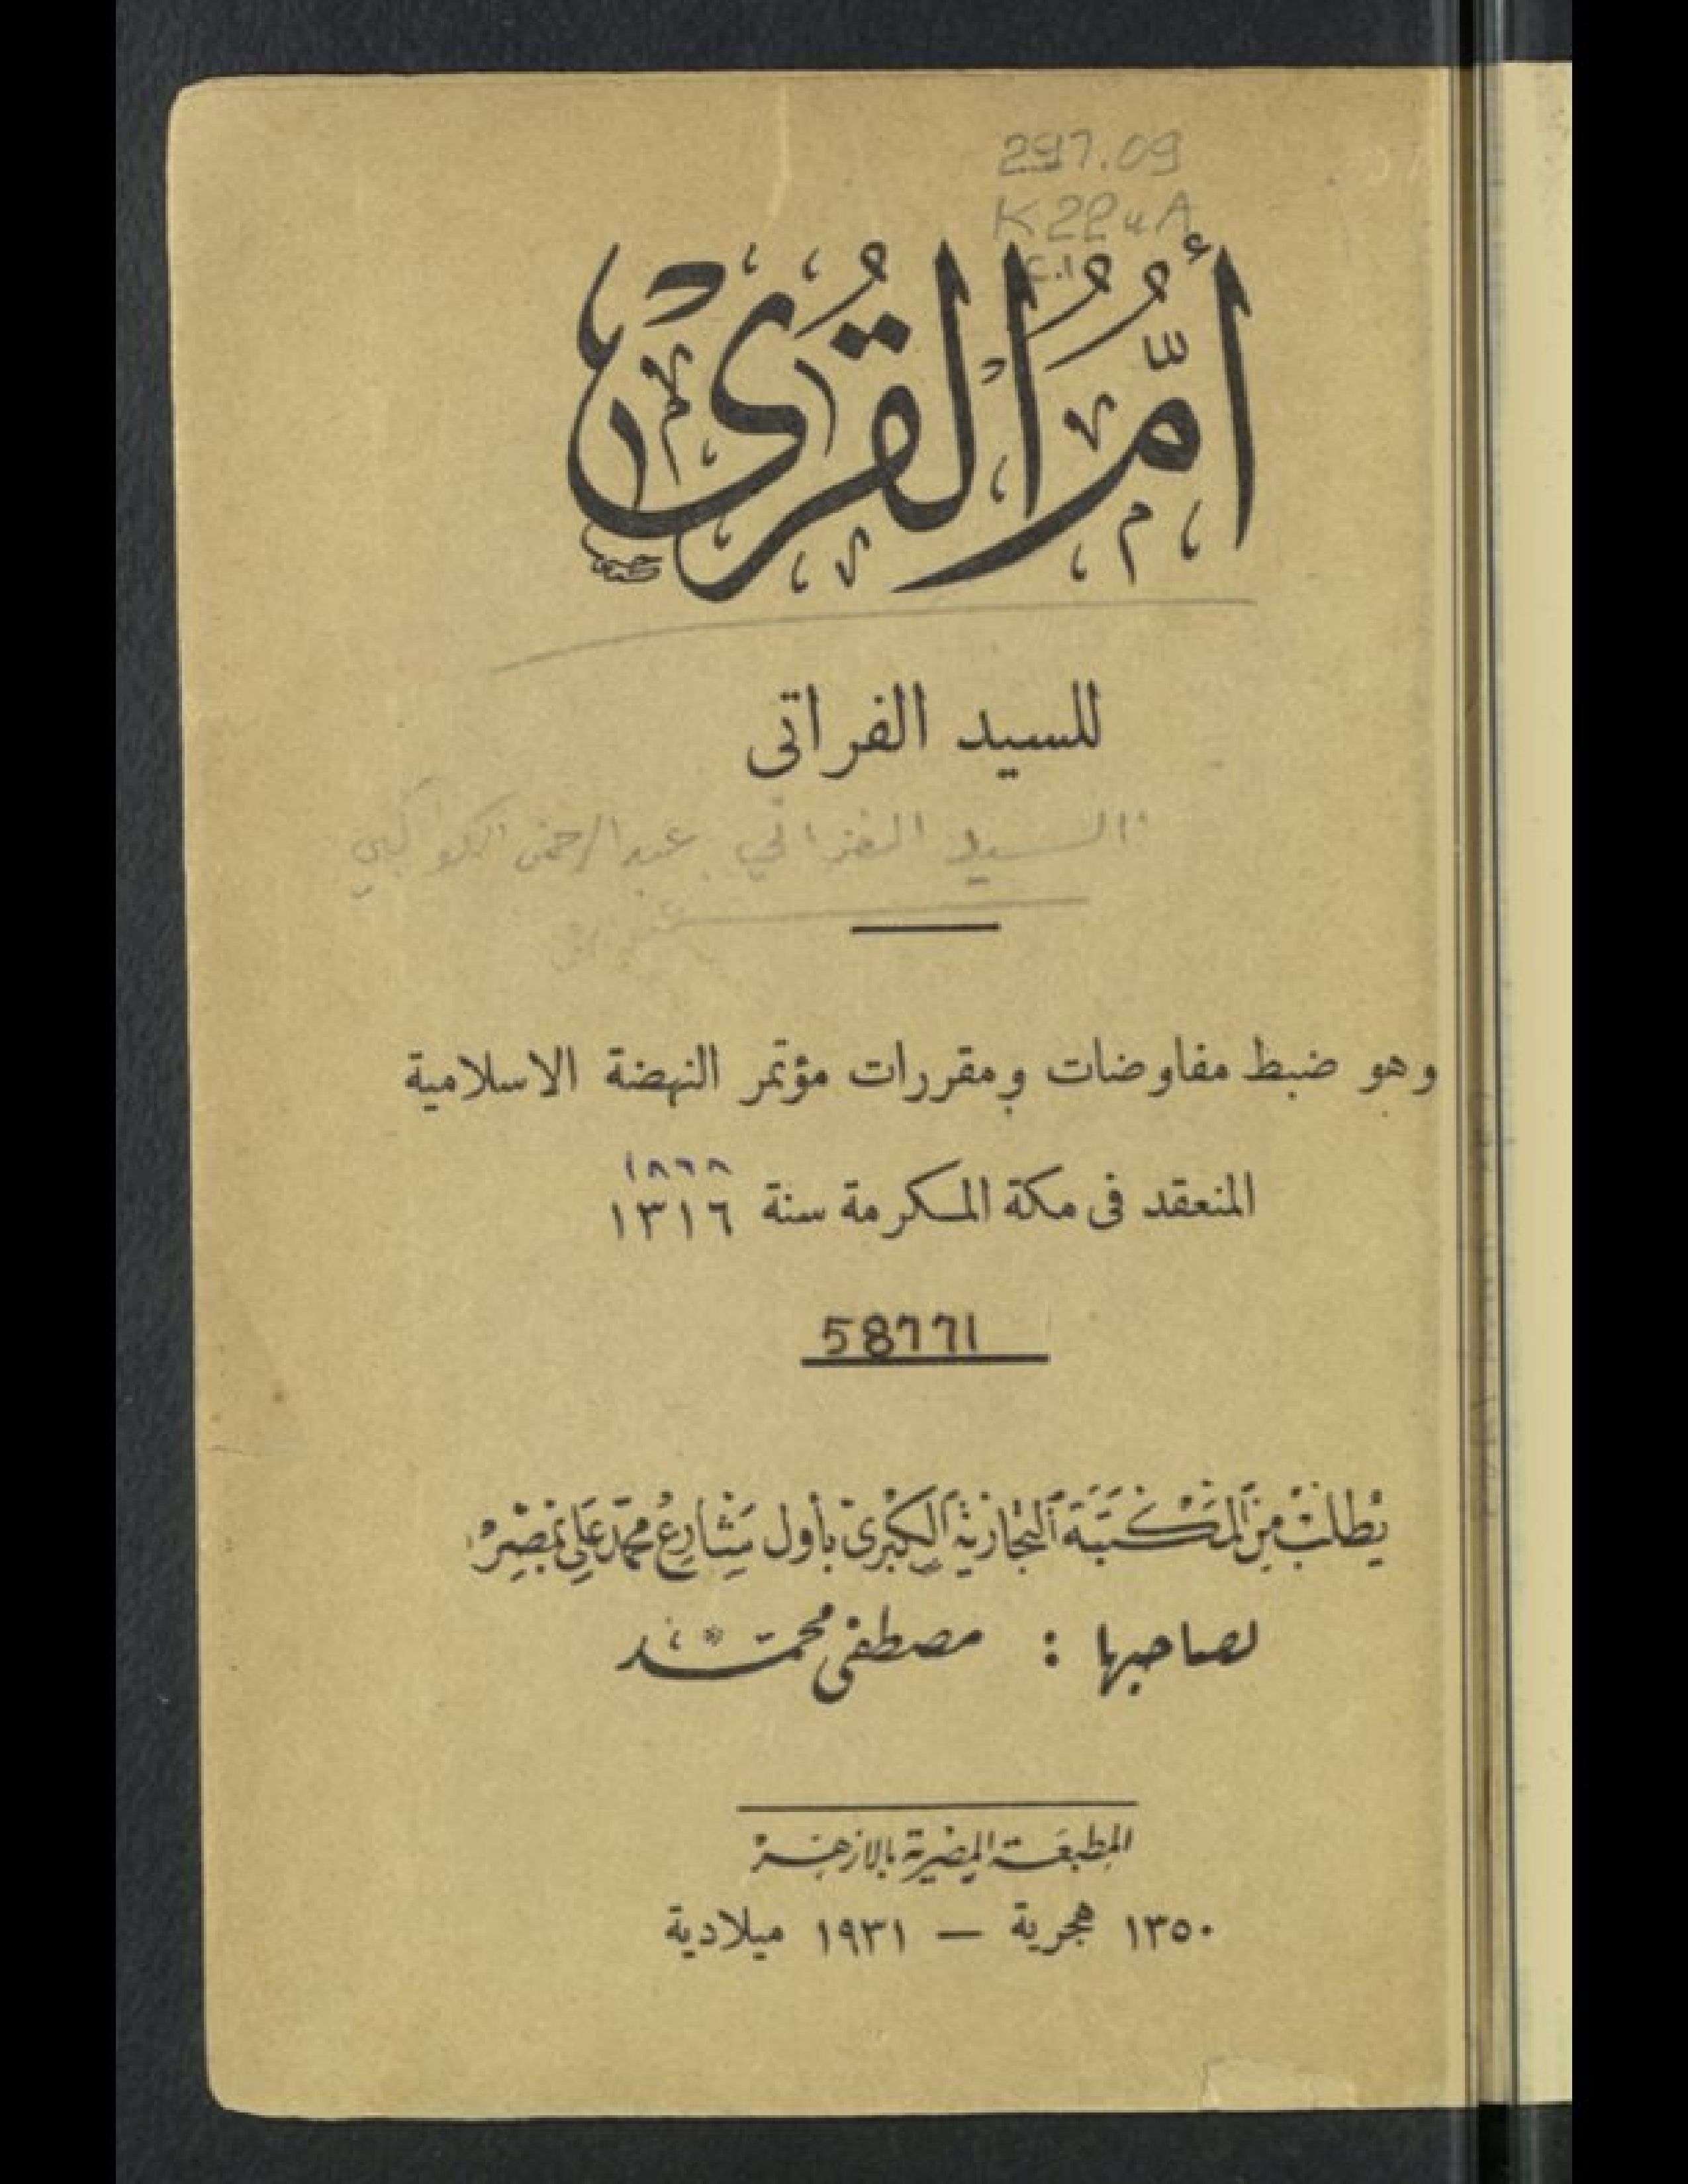 297.09
K22uA
c.1
أُمُّ القُرَى
للسيد الفراتى
السيد الفراتي عبد الرحمن الكواكبي
وهو ضبط مفاوضات ومقررات مؤتمر النهضة الاسلامية
١٨٩٨
المنعقد فى مكة المكرمة سنة ١٣١٦
58771
يُطلب من المكتبة التجارية الكبرى بأول شارع محمد على بمصر
لصاحبها : مصطفى محمد
المطبعة المصرية بالازهر
١٣٥٠ هجرية — ١٩٣١ ميلادية